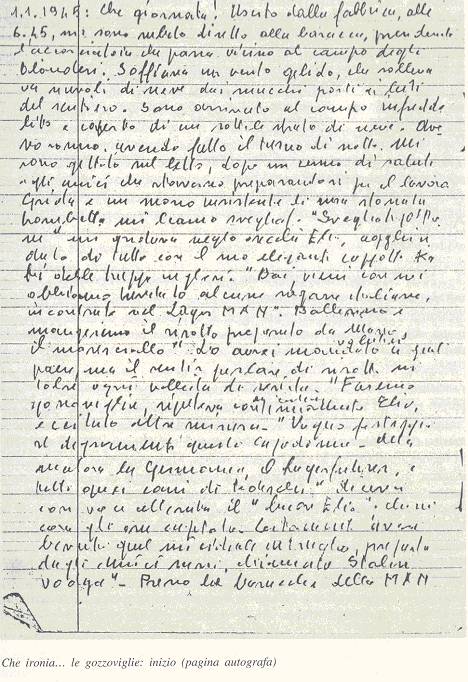 1.1.1945: Che giornata! Uscito dalla fabbrica, alle
6.45, mi sono subito diretto alla baracca, prendendo
l'accorciatoia che passa vicino al campo degli
olandesi. Soffiava un vento gelido, che solleva
va nuvoli di neve dai mucchi posti ai lati
del sentiero. Sono arrivato al campo infreddo
lito e coperto di un sottile strato di neve. Ave
vo sonno, avendo fatto il turno di notte. Mi
sono gettato sul letto, dopo un cenno di saluto
agli amici che stavano preparandosi per il lavoro
Grida e un suono insistente di una stonata
mi hanno svegliato. "Svegliati
mi gridava nelle orecchie Elio,
dato di tutto con il suo elegante cappotto
delle truppe inglesi. "Dai, vieni con noi
abbiamo invitato alcune ragazze italiane,
incontrate nel Lager MAN". Balleremo e
mangeremo il risotto preparato da
il maresciallo". Lo avrei mandato volentieri a quel
paese, ma il sentir parlare di risotto mi
tolse ogni velleità di "Faremo
gozzoviglie, ripeteva continuamente Elio,
eccitato oltre misura. "Voglio festeggia
re degnamente questo capodanno. della
malora la Germania, il Lagerführer, e
tutti questi cani di tedeschi" diceva
con voce alterata il "buon Elio".
cosa gli era capitato. Certamente aveva
bevuto quel intruglio, preparato
dagli amici russi, chiamato Stalin
Vodga". Presso la baracca della MAN
Che ironia... le gozzoviglie: inizio (pagina autografa)